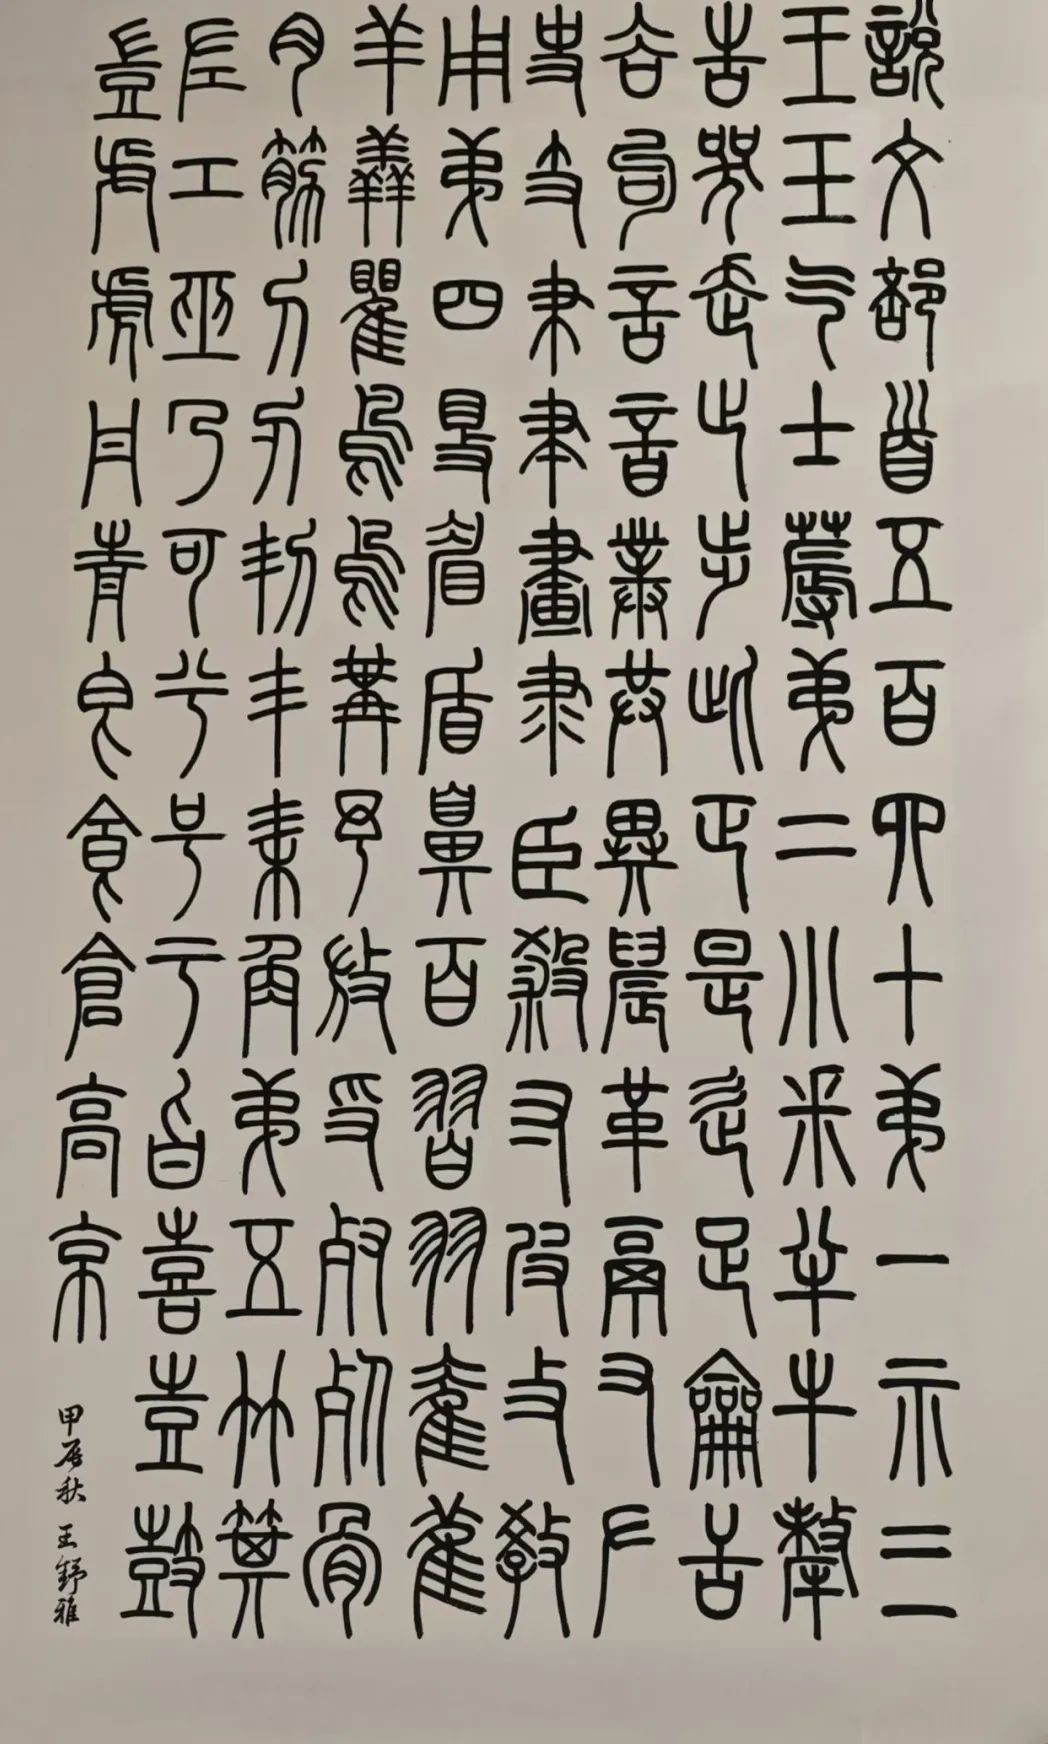 說文部首五百四十弟一示三
王玉气士蓐弟二小釆半牛犛
告哭走止步此正是辵足龠舌
谷句言音菐共異晨革鬲又𠂇
史支𦘒聿畫隶臣殺寸皮攴教
用弟四𥄎眉盾鼻百習羽奞雈
羊羴瞿鳥烏冓予放𠬪𣦼死骨
肉筋刀刃㓞丯耒角弟五竹箕
左工巫乃可兮号亏旨喜壴鼓
豈虍虎丹青皀食倉高京
甲辰秋 王舒雅